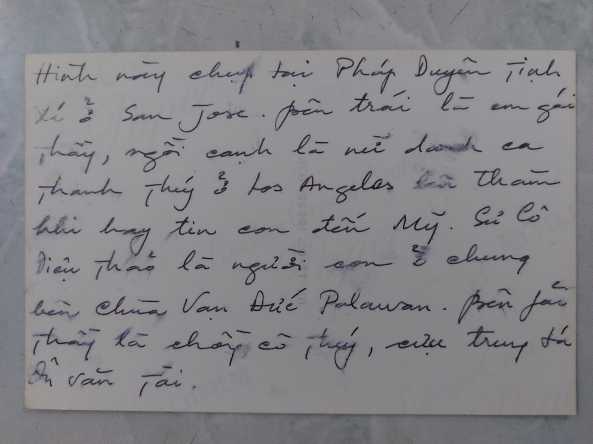 Hình này chụp tại Pháp Duyên Tịnh
Xá ở San Jose. Bên trái là em gái
Thầy, ngồi cạnh là nữ danh ca
Thanh Thúy ở Los Angeles lên thăm
khi hay tin con đến Mỹ. Sư Cô
Diệu Thảo là người con ở chung
bên chùa Vạn Đức Palawan. Bên phải
Thầy là chồng cô Thúy, cựu trung tá
Ôn Văn Tài.